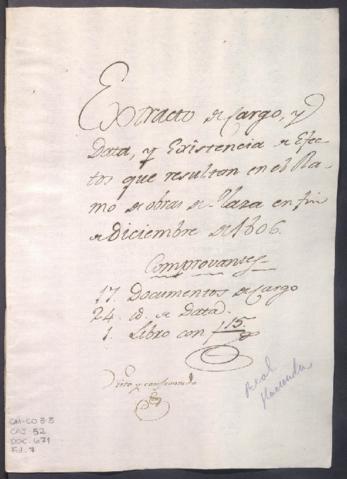 Extracto de Cargo, y
Data, y Existencia de Efec-
tos que resultan en el Ra-
mo de obras de Plaza en fin
de Diciembre de 1806.
Comprovanse
17. Documentos de Cargo
24. id. de Data
1. Libro con f 15
Visto y confrontado
Real
Hacienda
GM-CO 8-8
CAJ. 52
DOC. 671
FJ. 7